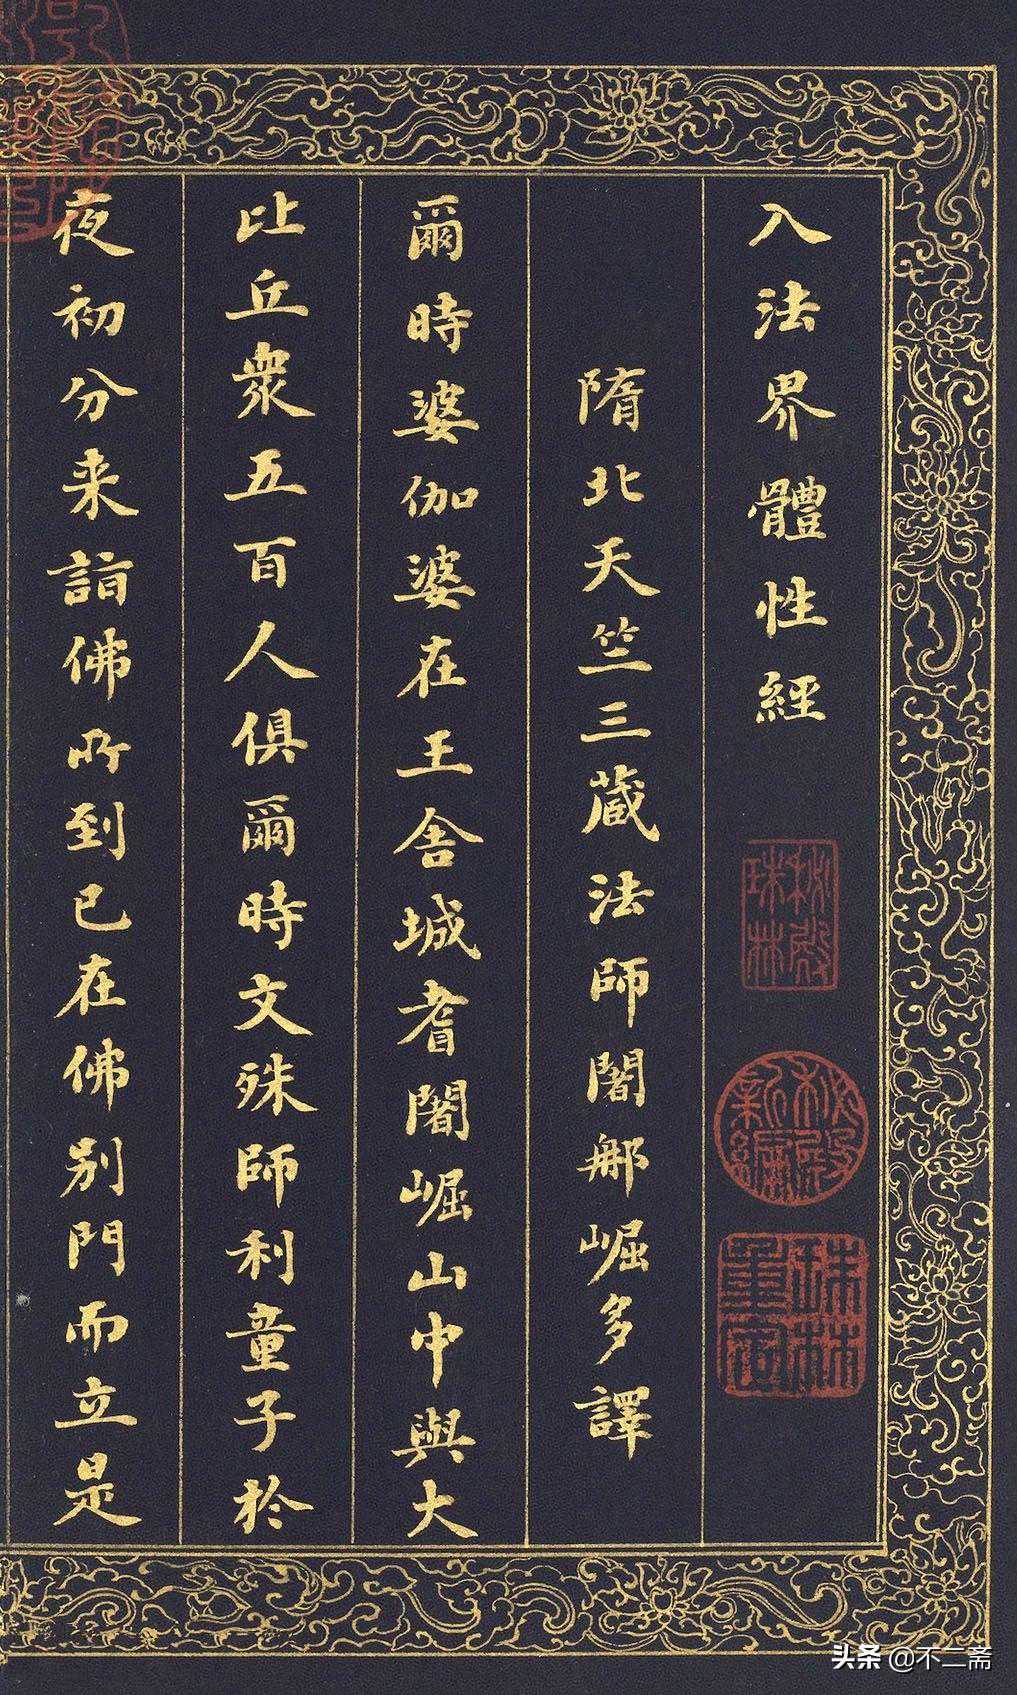 入法界體性經
隋北天竺三藏法師闍那崛多譯
爾時婆伽婆在王舍城耆闍崛山中與大
比丘衆五百人俱爾時文殊師利童子於
夜初分来詣佛所到已在佛別門而立是
秘殿珠林
秘殿新編
珠林重定
头条 @不二斋